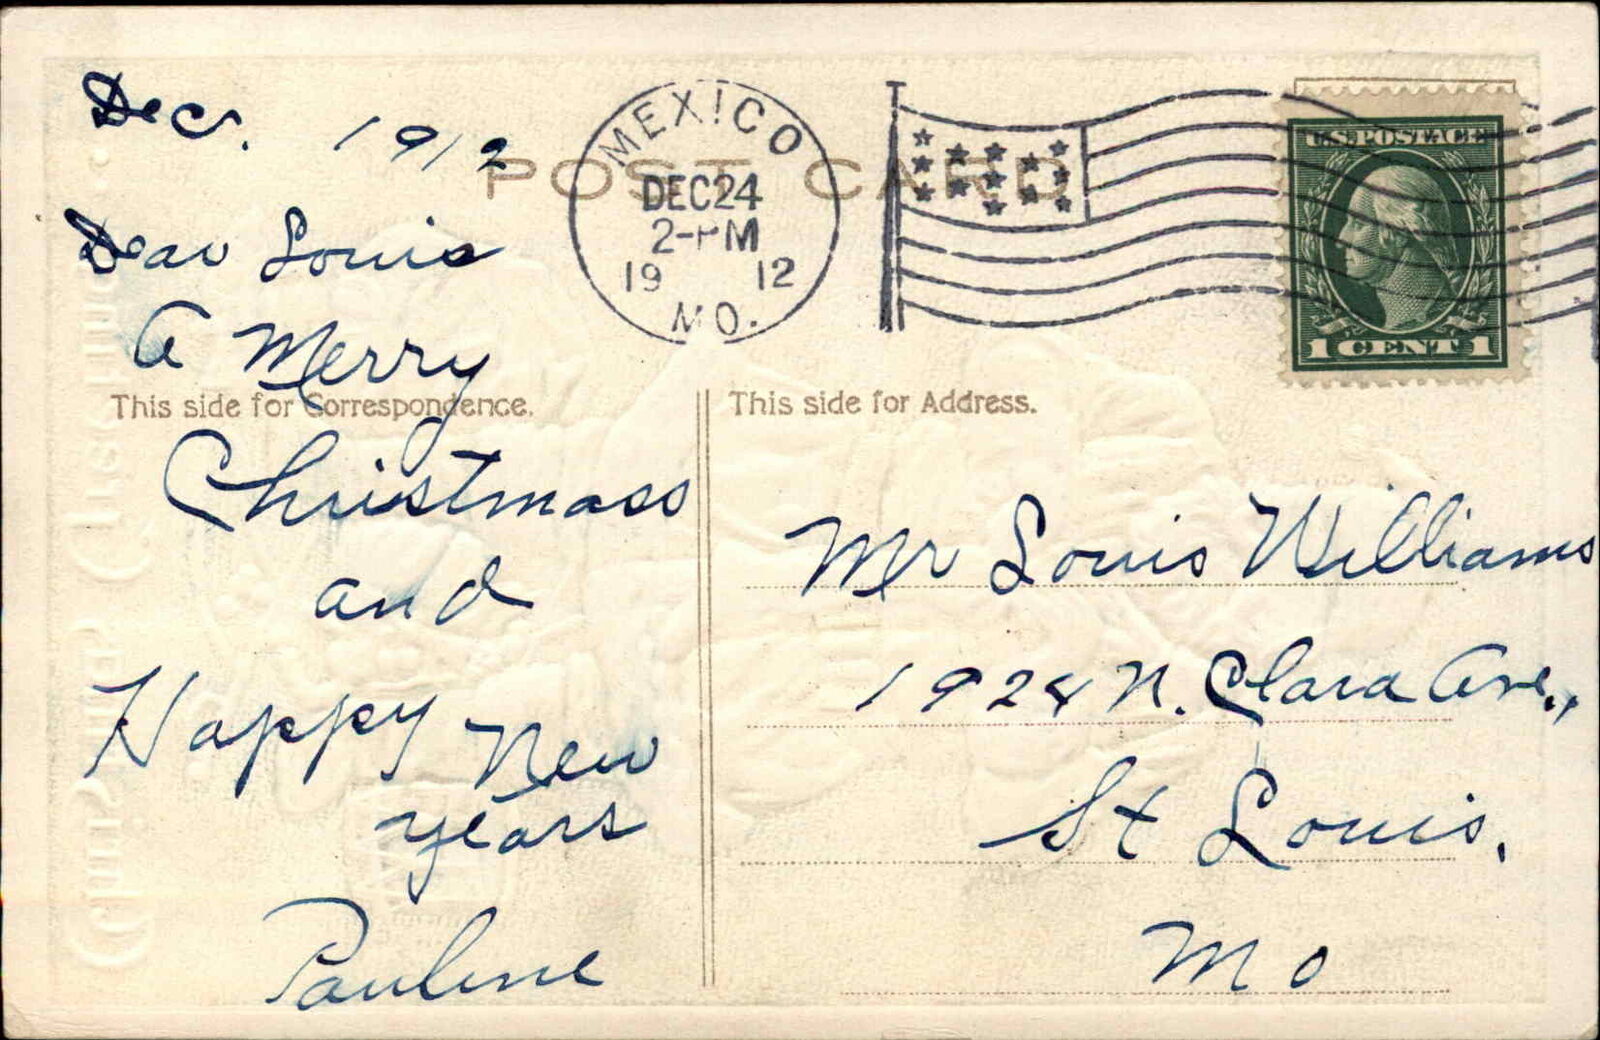 Dec. 1912
POST CARD
MEXICO
DEC 24
2-PM
19 12
MO.
U.S. POSTAGE
1 CENT 1
Dear Louis
A Merry
This side for Correspondence.
Christmass
and
Happy New
years
Pauline
This side for Address.
Mr Louis Williams
1928 N. Clara Ave.,
St Louis,
Mo